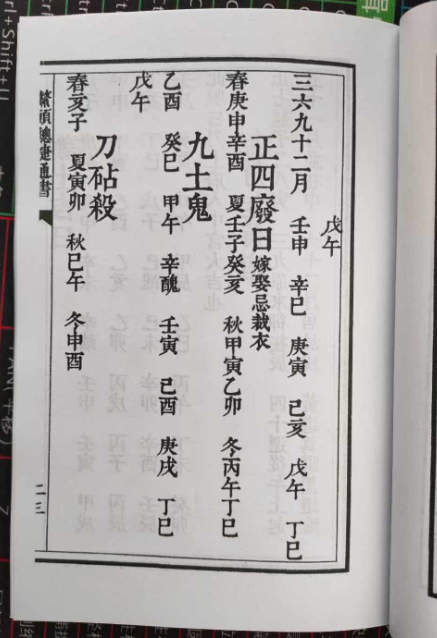 戊午
三六九十二月 壬申 辛巳 庚寅 己亥 戊午 丁巳
正四廢日 嫁娶忌裁衣
春庚申辛酉 夏壬子癸亥 秋甲寅乙卯 冬丙午丁巳
九土鬼
乙酉 癸巳 甲午 辛醜 壬寅 己酉 庚戌 丁巳
戊午
刀砧殺
春亥子 夏寅卯 秋巳午 冬申酉
通書
二三